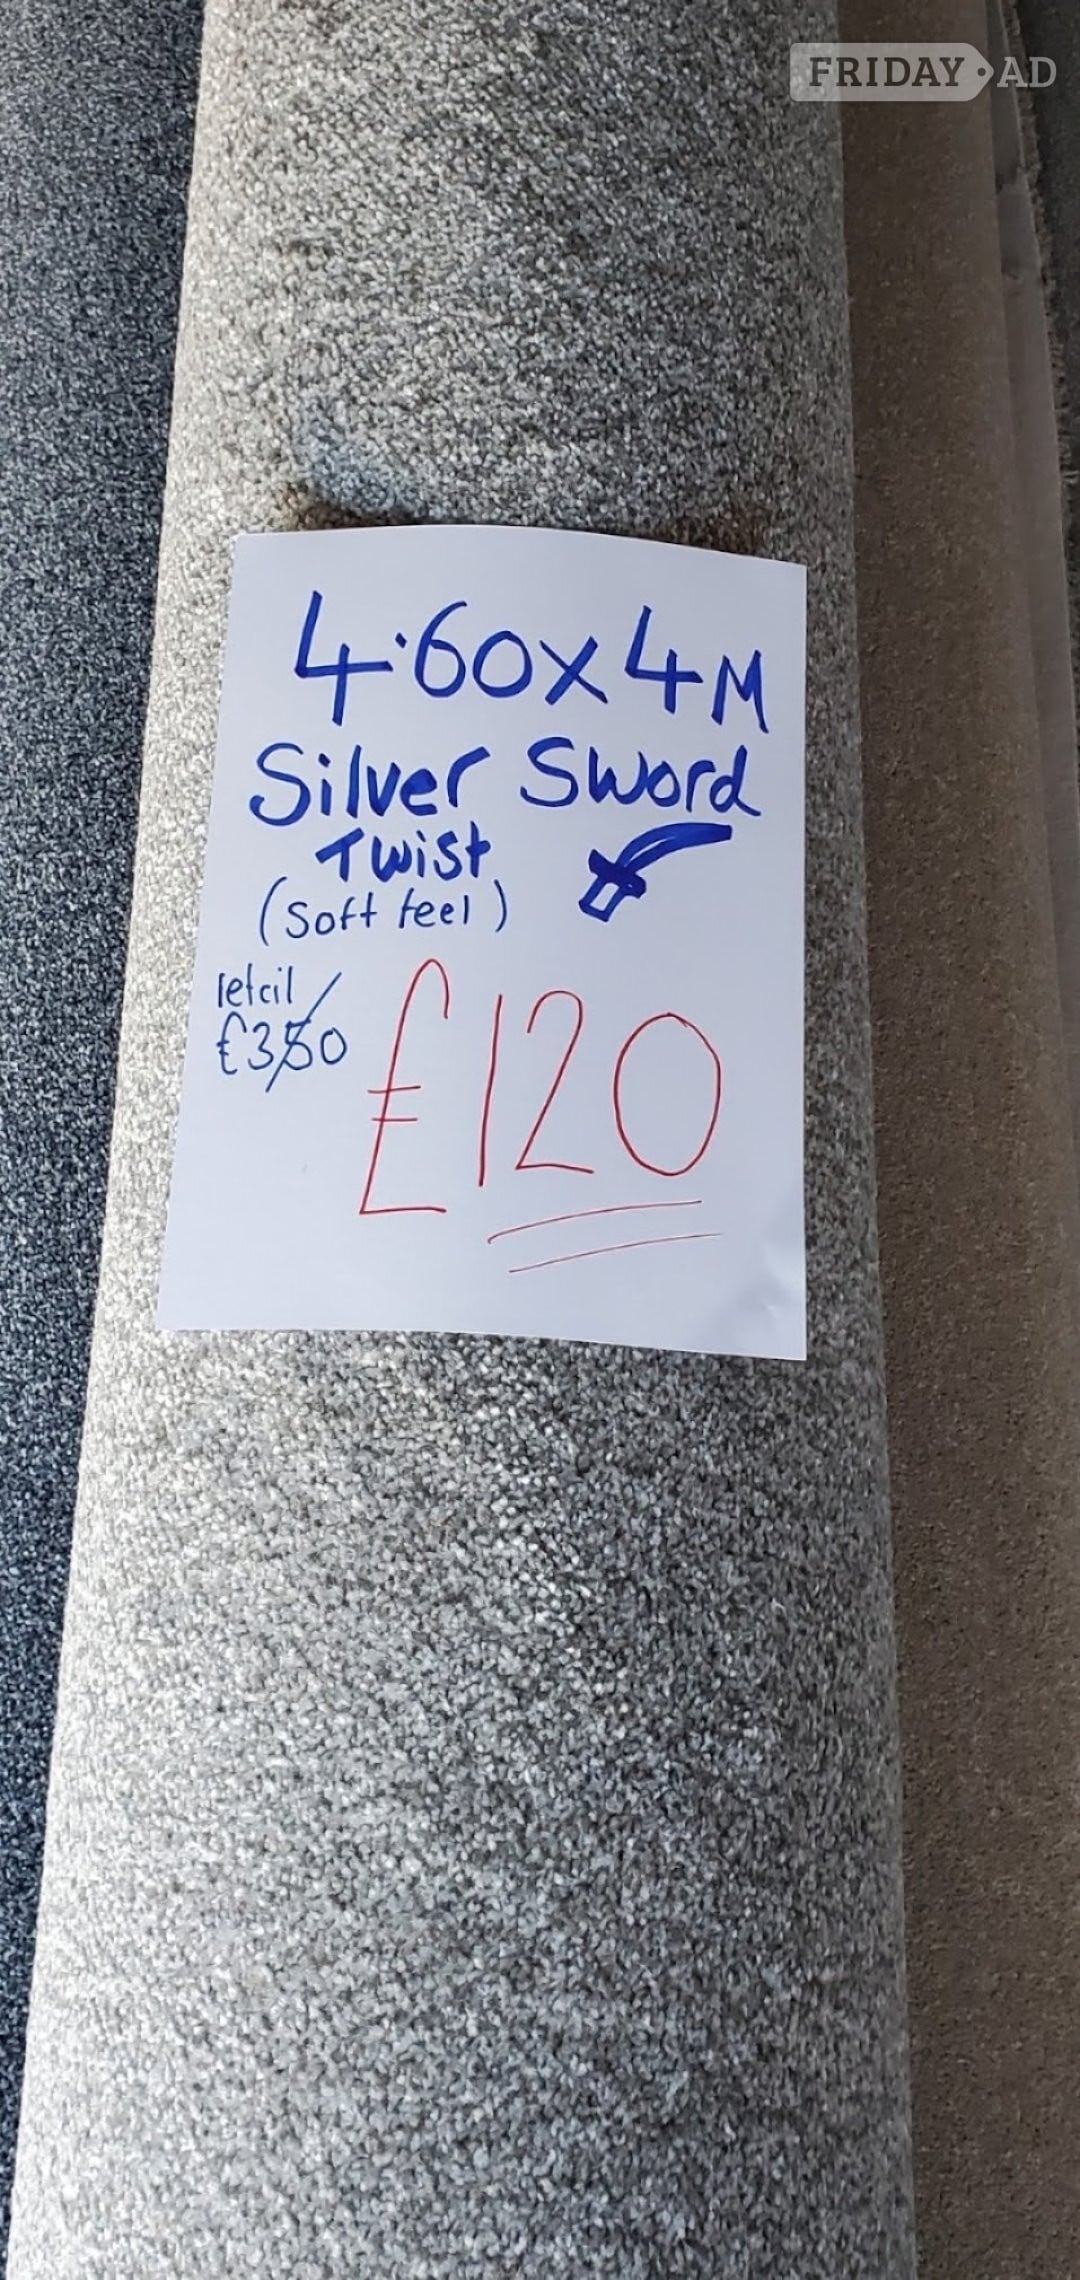 FRIDAY AD
4.60x4M
Silver Sword
Twist
(Soft feel)
retail
£350
£120